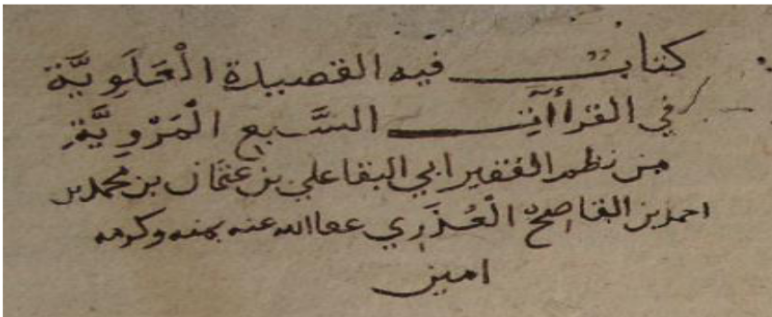 كتاب فيه القصيدة الْعَلَوِيَّة
في القراأت السَّبع الْمَرْوِيَّةِ
من نظم الفقير ابي البقا علي بن عثمان بن محمد بن
احمد بن القاصح الْعُذْرِي عفا الله عنه بمنه وكرمه
امين